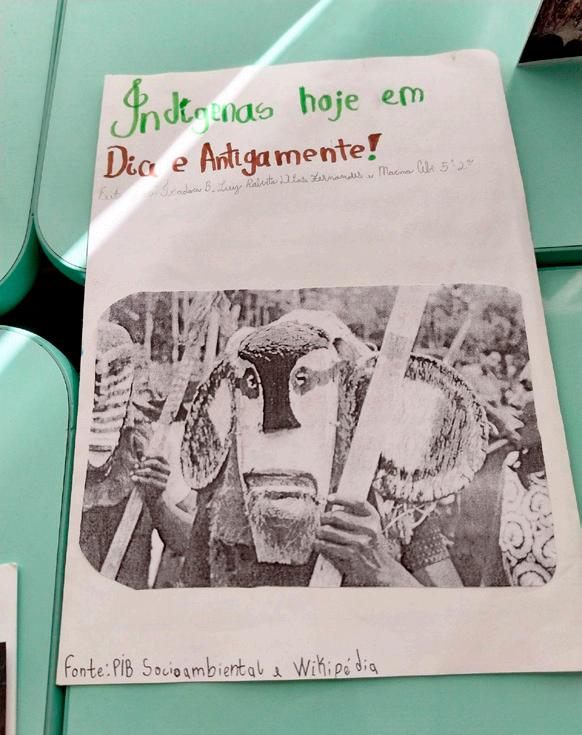 Indígenas hoje em
Dia e Antigamente!
Isadora B, Luiz Fernandes e 5º 2ª
Fonte: PIB Socioambiental e Wikipédia